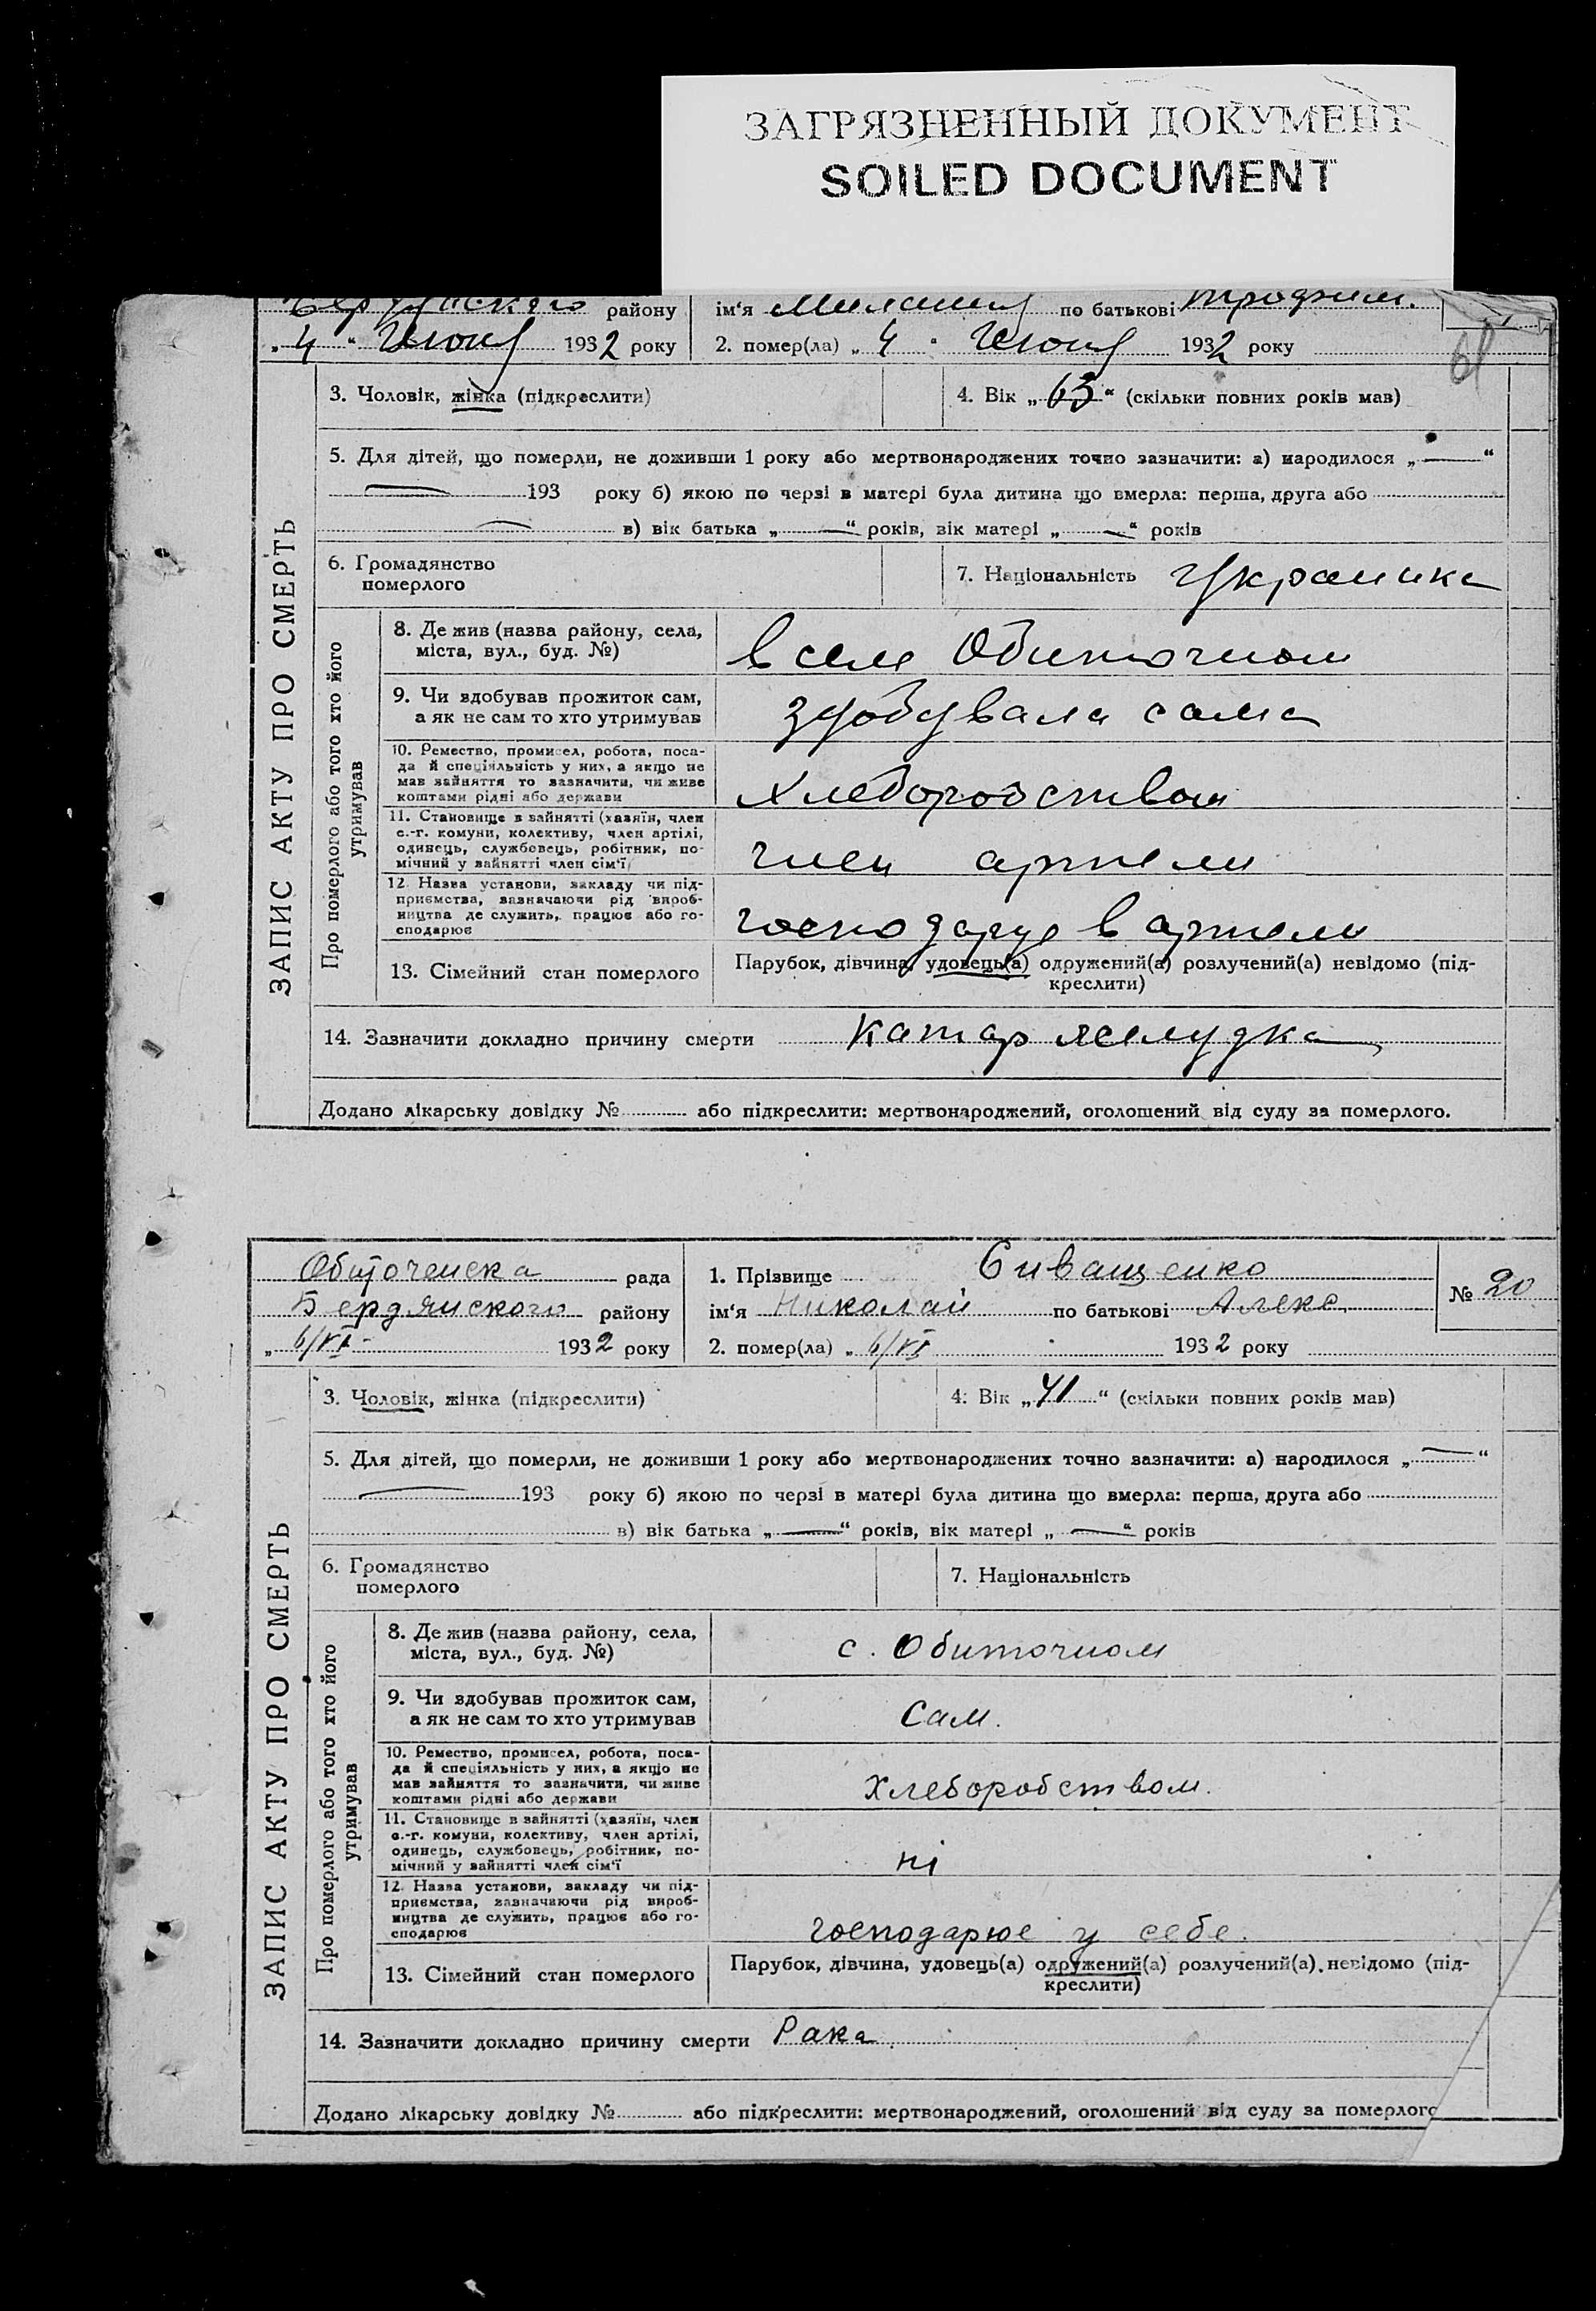 ЗАГРЯЗНЕННЫЙ ДОКУМЕНТ
SOILED DOCUMENT
району ім'я по батькові
„ 4 " Июня 1932 року 2. помер(ла) „ 4 " Июня 1932 року
3. Чоловік, жінка (підкреслити) 4. Вік „ 63 " (скільки повних років мав)
5. Для дітей, що померли, не доживши 1 року або мертвонароджених точно зазначити: а) народилося „ — "
193 року б) якою по черзі в матері була дитина що вмерла: перша, друга або
в) вік батька „ — " років, вік матері „ — " років
6. Громадянство померлого
7. Національність Украинка
ЗАПИС АКТУ ПРО СМЕРТЬ
Про померлого або того хто його утримував
8. Де жив (назва району, села,
міста, вул., буд. №)
в селе Обиточном
9. Чи здобував прожиток сам,
а як не сам то хто утримував
здобувала сама
10. Ремество, промисел, робота, поса-
да й спеціяльність у них, а якщо не
мав зайняття то зазначити, чи живе
коштами рідні або держави
Хлеборобством
11. Становище в зайнятті (хазяїн, член
с.-г. комуни, колективу, член артілі,
одинець, службовець, робітник, по-
мічний у зайнятті член сім'ї
член артели
12. Назва установи, закладу чи під-
приємства, зазначаючи рід вироб-
ництва де служить, працює або го-
сподарює
господарує в артели
13. Сімейний стан померлого
Парубок, дівчина, удовець(а) одружений(а) розлучений(а) невідомо (під-
креслити)
14. Зазначити докладно причину смерти Катар желудка
Додано лікарську довідку № або підкреслити: мертвонароджений, оголошений від суду за померлого.
Обиточенска рада 1. Прізвище Сиващенко № 20
Бердянского району ім'я Николай по батькові Алекс.
„ 6/VI - 1932 року 2. помер(ла) „ 6/VI 1932 року
3. Чоловік, жінка (підкреслити) 4. Вік „ 41 " (скільки повних років мав)
5. Для дітей, що померли, не доживши 1 року або мертвонароджених точно зазначити: а) народилося „ — "
193 року б) якою по черзі в матері була дитина що вмерла: перша, друга або
в) вік батька „ — " років, вік матері „ — " років
6. Громадянство померлого
7. Національність
ЗАПИС АКТУ ПРО СМЕРТЬ
Про померлого або того хто його утримував
8. Де жив (назва району, села,
міста, вул., буд. №)
с. Обиточном
9. Чи здобував прожиток сам,
а як не сам то хто утримував
Сам.
10. Ремество, промисел, робота, поса-
да й спеціяльність у них, а якщо не
мав зайняття то зазначити, чи живе
коштами рідні або держави
Хлеборобством.
11. Становище в зайнятті (хазяїн, член
с.-г. комуни, колективу, член артілі,
одинець, службовець, робітник, по-
мічний у зайнятті член сім'ї
ні
12. Назва установи, закладу чи під-
приємства, зазначаючи рід вироб-
ництва де служить, працює або го-
сподарює
господарює у себе.
13. Сімейний стан померлого
Парубок, дівчина, удовець(а) одружений(а) розлучений(а) невідомо (під-
креслити)
14. Зазначити докладно причину смерти Рака
Додано лікарську довідку № або підкреслити: мертвонароджений, оголошений від суду за померлого